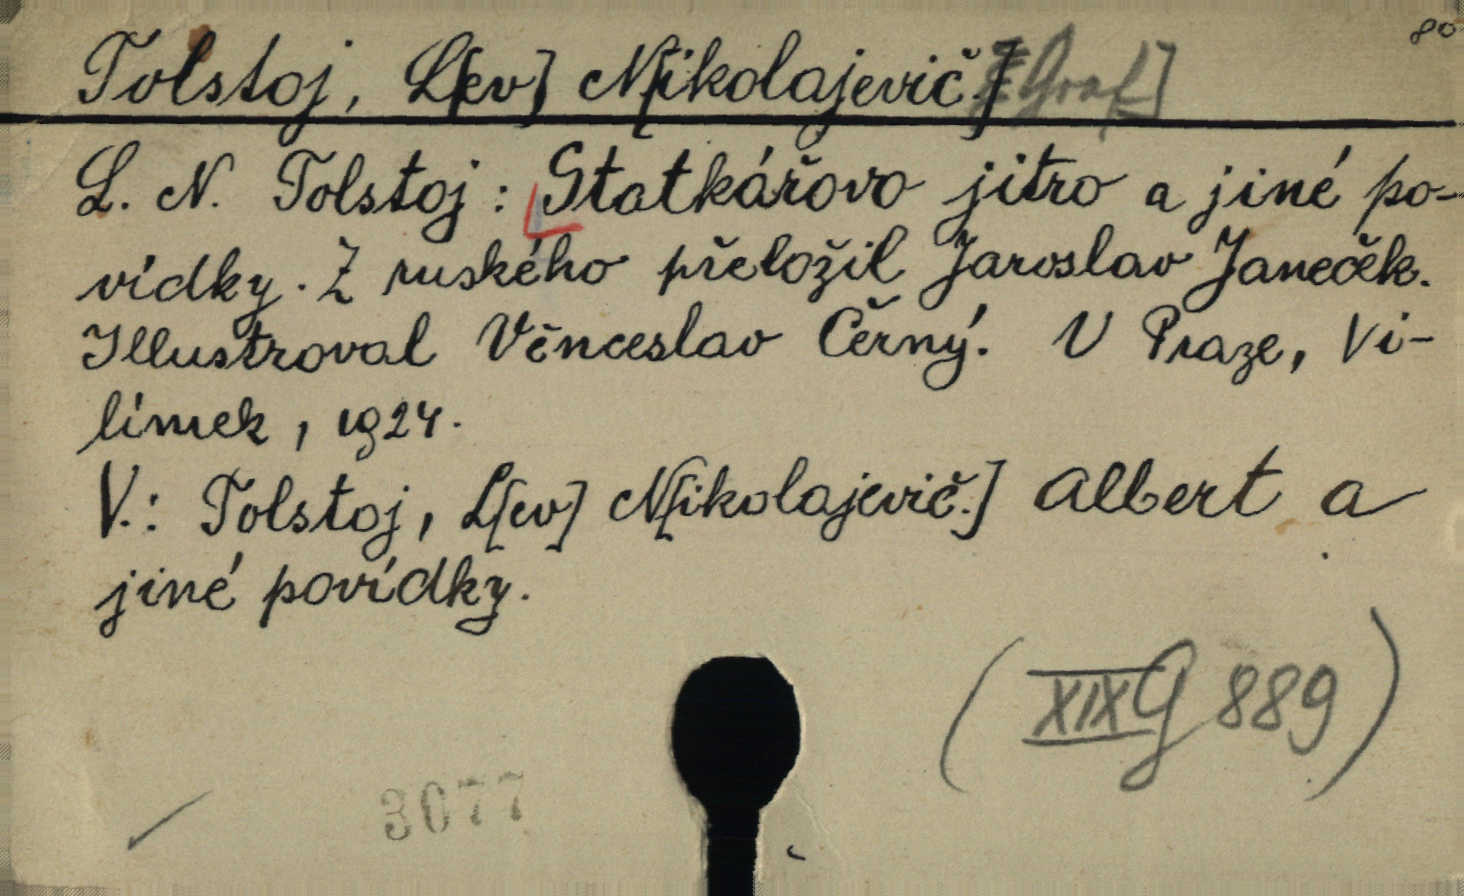 80
Tolstoj, L[ev] N[ikolajevič.] [Graf]
L. N. Tolstoj: Statkářovo jitro a jiné po-
vídky. Z ruského přeložil Jaroslav Janeček.
Illustroval Věnceslav Černý. V Praze, Vi-
límek, 1924.
V.: Tolstoj, L[ev] N[ikolajevič.] Albert a
jiné povídky.
(XIX G 889)
3077